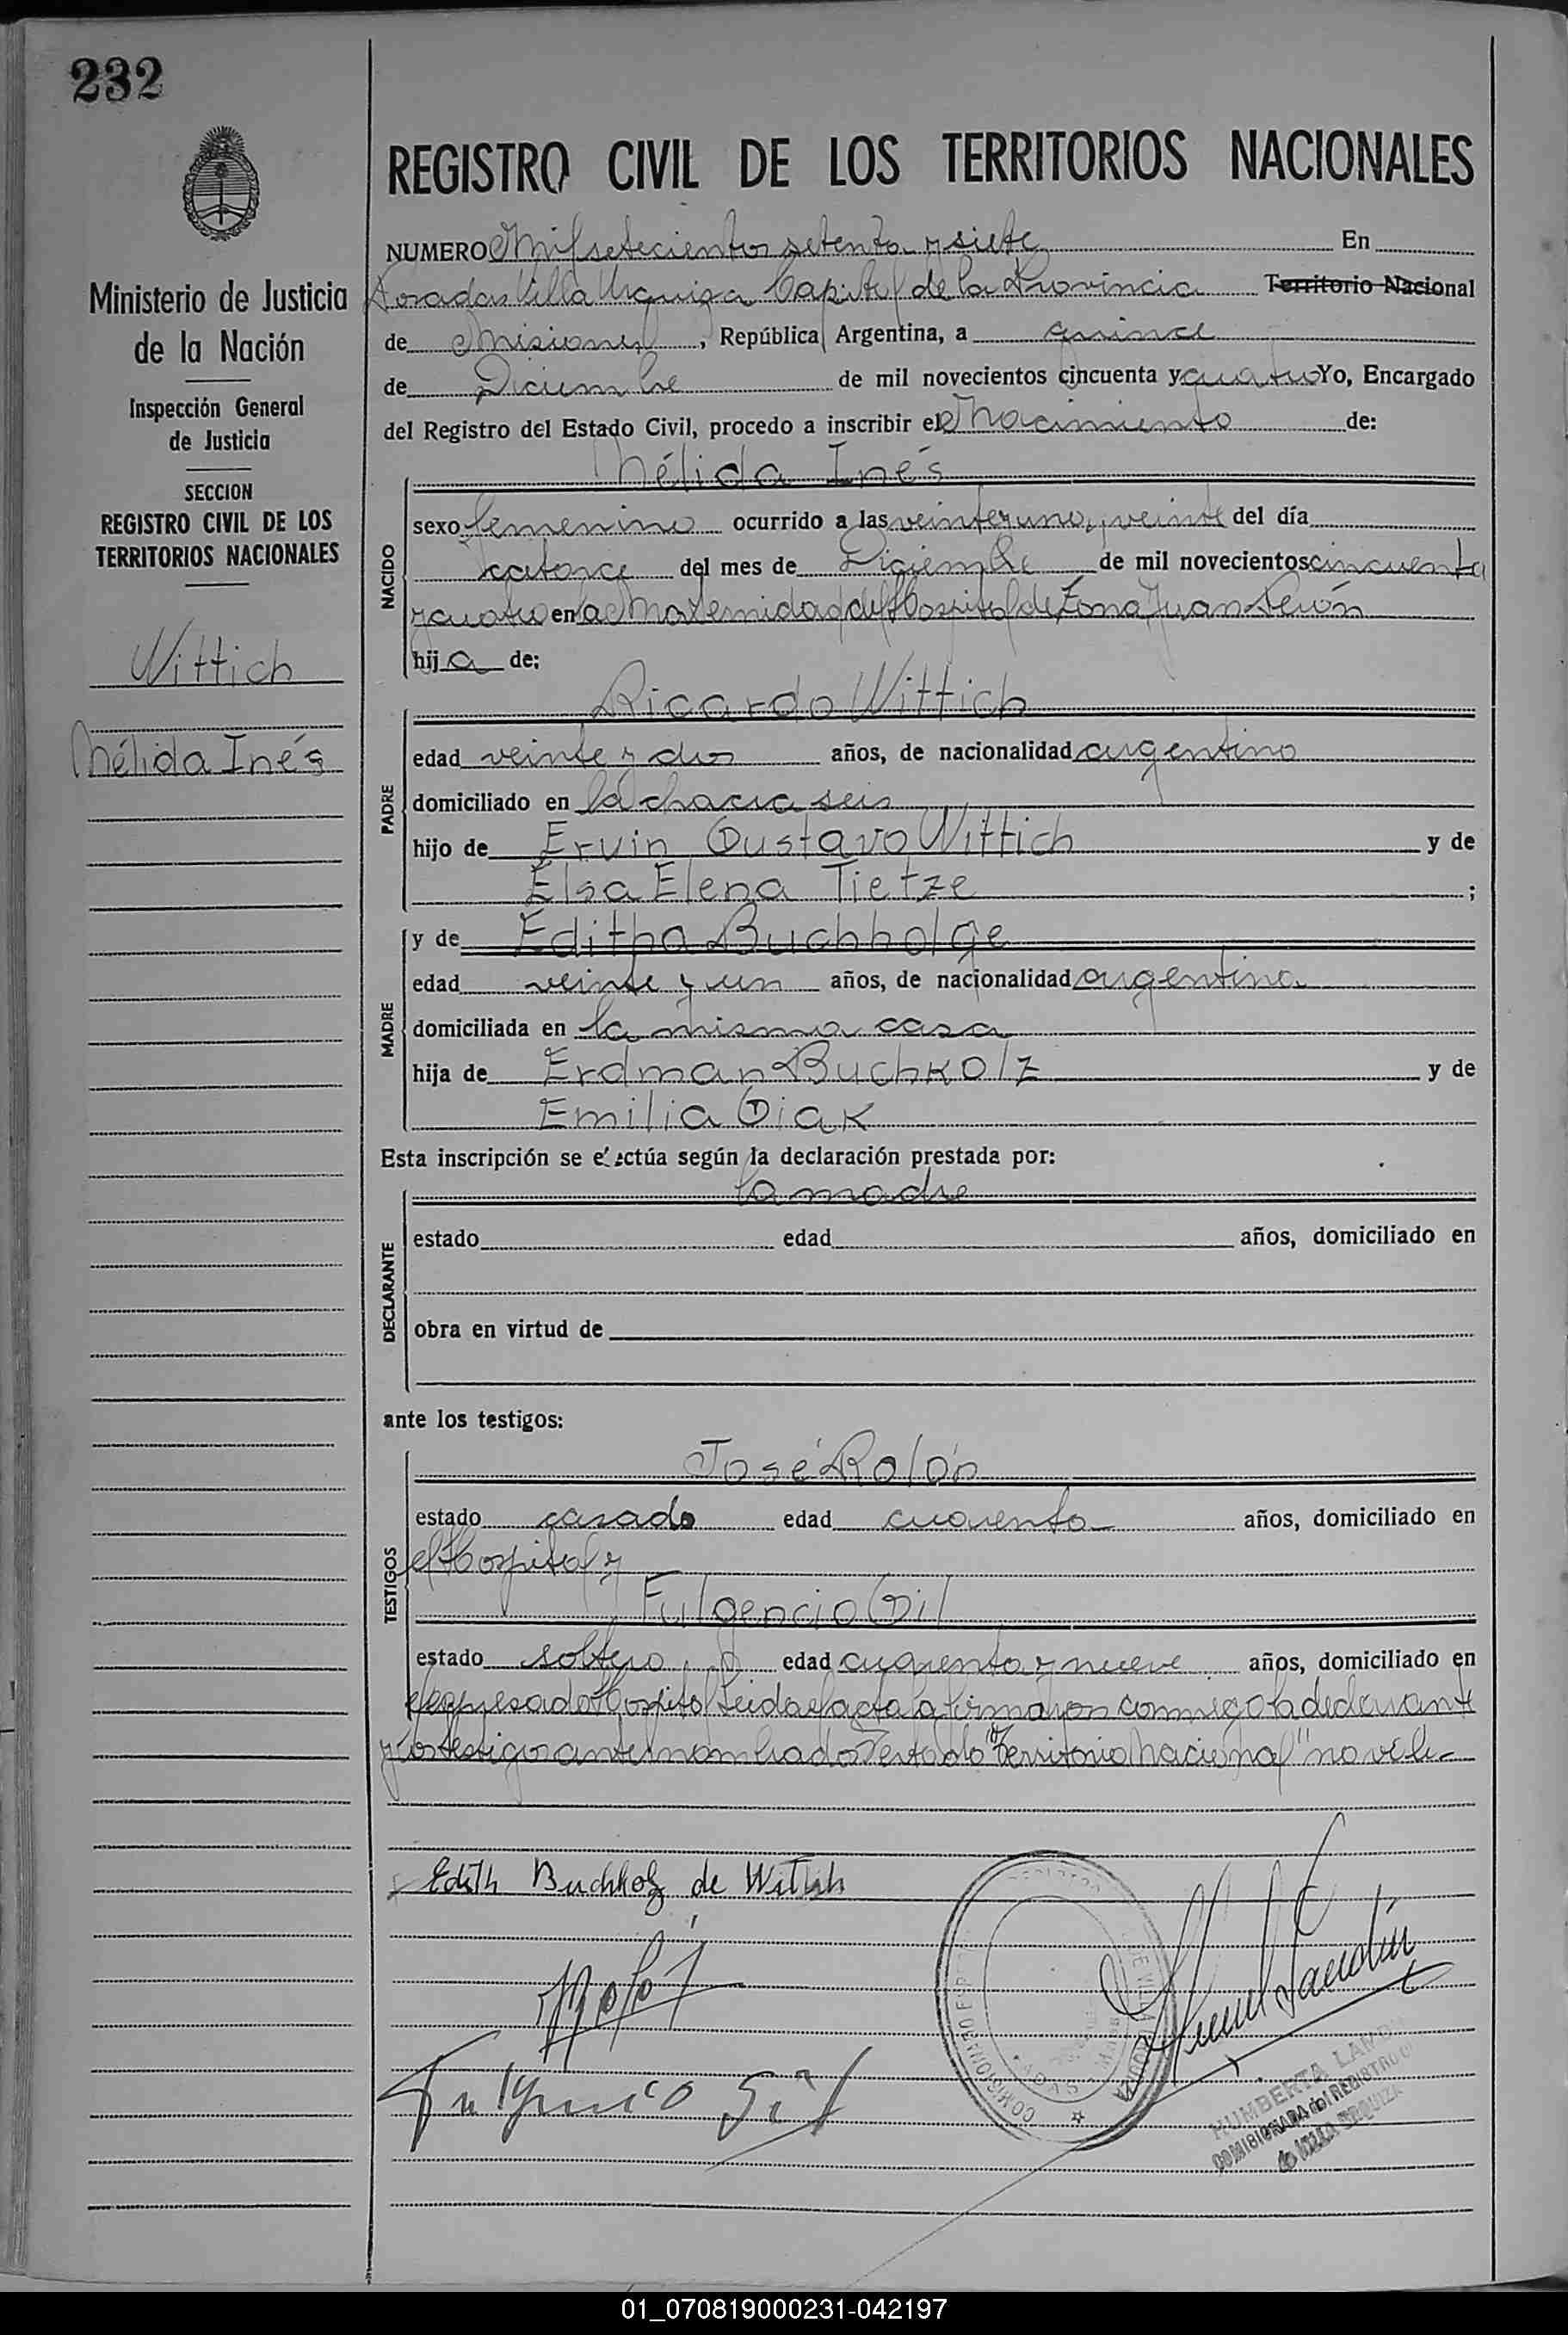 232
Ministerio de Justicia
de la Nación
Inspección General
de Justicia
SECCION
REGISTRO CIVIL DE LOS
TERRITORIOS NACIONALES
Wittich
Nélida Inés
REGISTRO CIVIL DE LOS TERRITORIOS NACIONALES
NUMERO Mil setecientos setenta y siete En
Posadas Villa Urquiza Capital de la Provincia Territorio Nacional
de Misiones, República Argentina, a quince
de Diciembre de mil novecientos cincuenta y cuatro Yo, Encargado
del Registro del Estado Civil, procedo a inscribir el Nacimiento de:
Nélida Inés
NACIDO
sexo femenino ocurrido a las veinteyuno y veinte del día
catorce del mes de Diciembre de mil novecientos cincuenta
y cuatro en la Maternidad del Hospital de Zona Juan Perón
hija de:
Ricardo Wittich
PADRE
edad veinte y dos años, de nacionalidad argentino
domiciliado en la chacra seis
hijo de Ervin Gustavo Wittich y de
Elsa Elena Tietze ;
MADRE
y de Editha Buchholge
edad veinte y un años, de nacionalidad argentina
domiciliada en la misma casa
hija de Erdman Buchkolz y de
Emilia Giak
Esta inscripción se efectúa según la declaración prestada por:
la madre
DECLARANTE
estado edad años, domiciliado en
obra en virtud de
ante los testigos:
José Rolón
TESTIGOS
estado casado edad cuarenta años, domiciliado en
el Hospital y
Fulgencio Gil
estado soltero edad cuarenta y nueve años, domiciliado en
el expresado Hospital Leida el acta la firmaron conmigo la declarante
y los testigos antes nombrados Testado "Territorio Nacional" no vale
Edith Buchholz de Wittich
Rolón
Fulgencio Gil
HUMBERTA
COMISIONADA del REGISTRO
de VILLA URQUIZA
01_070819000231-042197